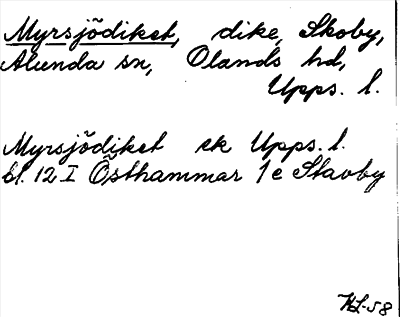 Myrsjödiket, dike, Skoby,
Alunda sn, Olands hd,
Upps. l.
Myrsjödiket ek Upps. l.
bl. 12 I Östhammar 1e Stavby
HL-58